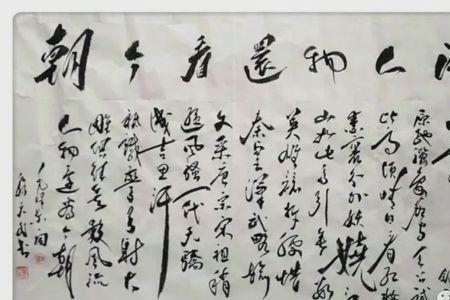 人物還看今朝
原馳蠟象欲與天公試
比高須晴日看紅裝
素裹分外妖嬈江
山如此多引無數
英雄競折腰惜
秦皇漢武略輸
文采唐宗宋祖稍
遜風騷一代天驕
成吉思汗
祇識彎弓射大
雕俱往矣數風流
人物還看今朝
毛澤東詞